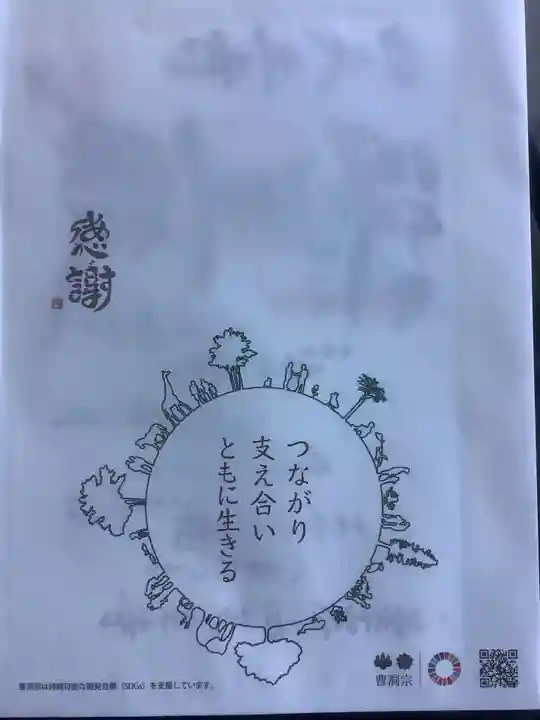 感謝
つながり
支え合い
ともに生きる
曹洞宗
曹洞宗は持続可能な開発目標（SDGs）を支援しています。